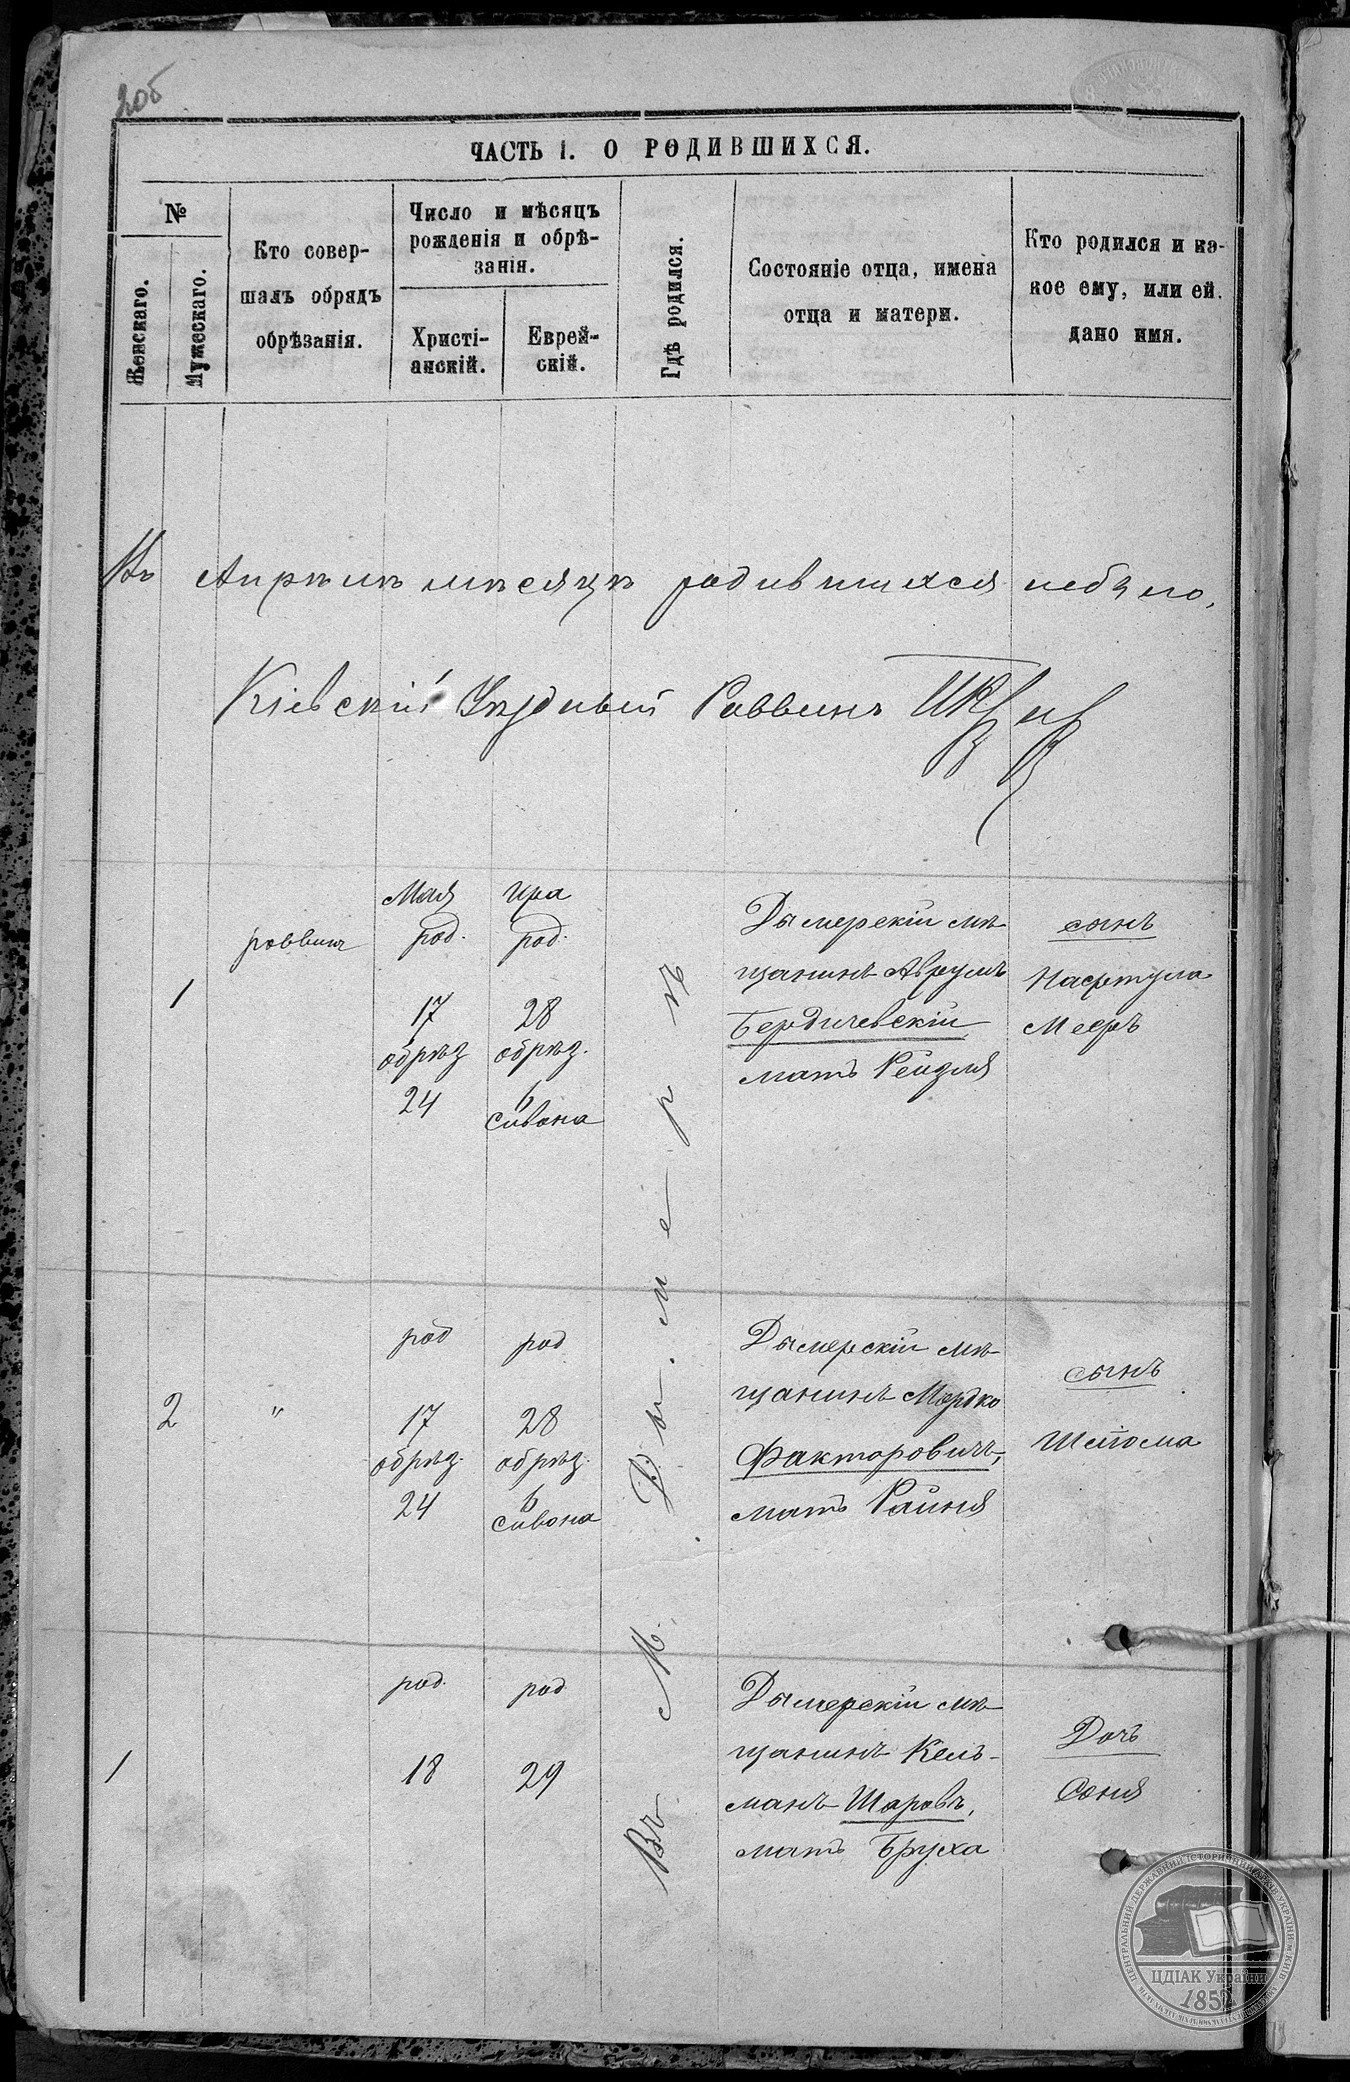 20б
ЧАСТЬ I. О РОДИВШИХСЯ.
№
Женскаго.
Мужескаго.
Кто совер-
шалъ обрядъ
обрѣзанія.
Число и мѣсяцъ
рожденія и обрѣ-
занія.
Христі-
анскій.
Еврей-
скій.
Гдѣ родился.
Состояніе отца, имена
отца и матери.
Кто родился и ка-
кое ему, или ей
дано имя.
Въ Апрѣлѣ мѣсяцѣ родившихся небыло.
Кіевскій Уѣздный Раввинъ
1
раввинъ
Мая
род.
17
обрѣз
24
Ира
род.
28
обрѣз.
6
Сивона
Дымерскій мѣ-
щанинъ Аврумъ
Бердичевскій
мать Рейзля
сынъ
Нафтула
Меєръ
2
"
род
17
обрѣз.
24
род
28
обрѣз.
6
Сивона
Дымерскій мѣ-
щанинъ Мордко
Факторовичъ,
мать Райня
сынъ
Шлiома
1
род.
18
род
29
Дымерскій мѣ-
щанинъ Кель-
манъ Шаровъ,
мать Бруха
Дочь
Соня
Въ М. Дымерѣ
ЦЕНТРАЛЬНИЙ ДЕРЖАВНИЙ ІСТОРИЧНИЙ АРХІВ УКРАЇНИ М. КИЇВ
ЦДІАК України
1852